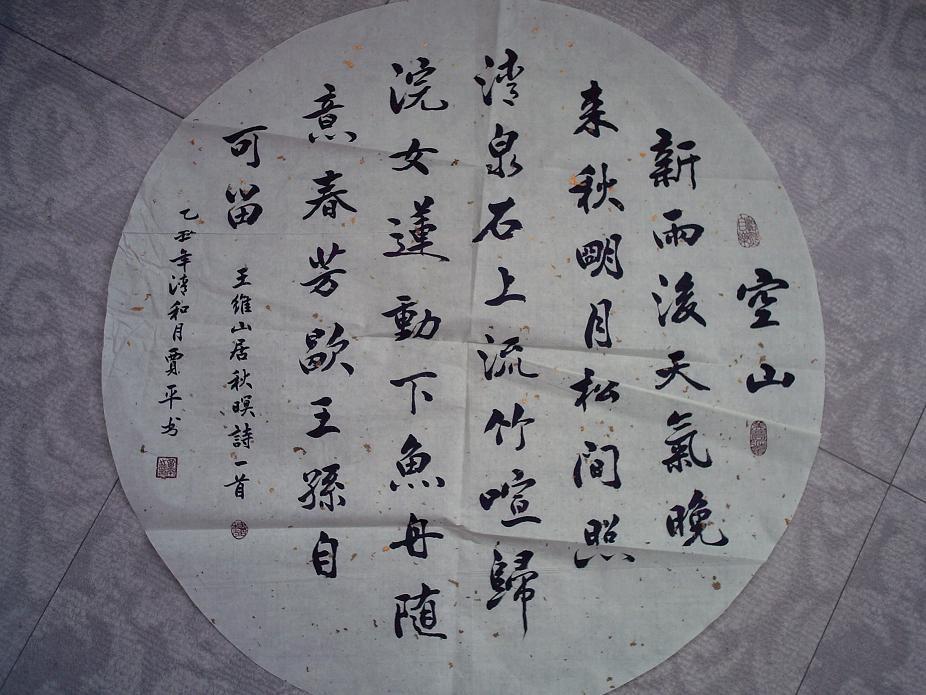 空山
新雨後天氣晚
来秋明月松间照
清泉石上流竹喧歸
浣女蓮動下魚舟随
意春芳歇王孫自
可留
王維山居秋暝詩一首
乙丑年清和月賈平书